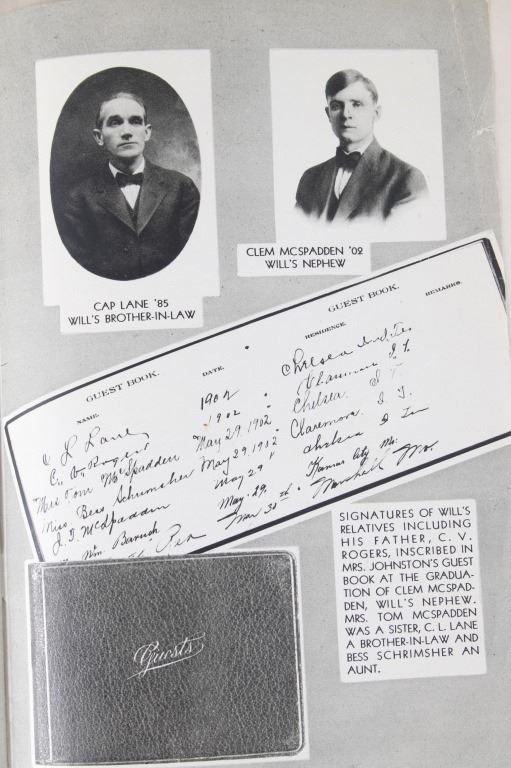 CAP LANE '85
WILL'S BROTHER-IN-LAW
CLEM MCSPADDEN '02
WILL'S NEPHEW
GUEST BOOK. GUEST BOOK.
NAME. DATE. RESIDENCE. REMARKS.
C L Lane 1902 Chelsea
C. V. Rogers 1902 I. T.
Mrs Tom McSpadden May 29, 1902 Chelsea I T
Miss Bess Schrimsher May 29, 1902 Claremore I. T.
J. T. McSpadden May 29 " Chelsea I Ter
Wm. Baruch May. 29. Kansas City Mo.
30th Marshall Mo.
Guests
SIGNATURES OF WILL'S
RELATIVES INCLUDING
HIS FATHER, C. V.
ROGERS, INSCRIBED IN
MRS. JOHNSTON'S GUEST
BOOK AT THE GRADUA-
TION OF CLEM MCSPAD-
DEN, WILL'S NEPHEW.
MRS. TOM MCSPADDEN
WAS A SISTER, C. L. LANE
A BROTHER-IN-LAW AND
BESS SCHRIMSHER AN
AUNT.